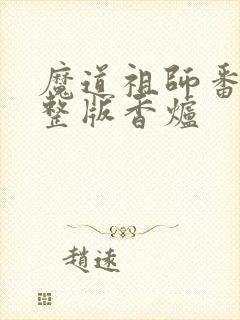 魔道祖師番
整版香爐
趙速